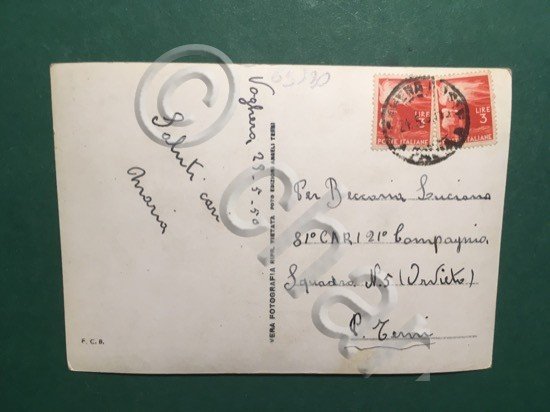 Voghera, 23-5-50
Saluti cari
Maria
F. C. B.
VERA FOTOGRAFIA RIPR. VIETATA FOTO EDIZIONI ANGELI TERNI
LIRE
3
POSTE ITALIANE
LIRE
3
POSTE ITALIANE
Per Beccaria Luciano
81° CAR / 21° Compagnia
Squadra N.5 (Orvieto)
P. Terni
© ghak